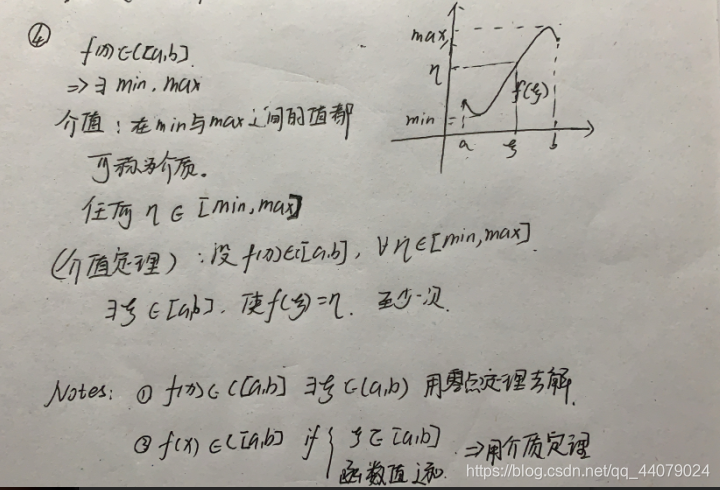 ④
f(x)∈C[a,b]
=> ∃ min, max
介值：在min与max之间的值都
可称为介质。
任何 η ∈ [min,max]
(介值定理)：设f(x)∈C[a,b]，∀η∈[min,max]
∃ξ∈[a,b]，使f(ξ)=η. 至少一次.
max
η
min
f(ξ)
a ξ b
Notes: ① f(x)∈C[a,b] ∃ξ∈(a,b) 用零点定理去解.
② f(x)∈C[a,b] if { ξ∈[a,b]
函数值之和
⇒用介质定理
https://blog.csdn.net/qq_44079024